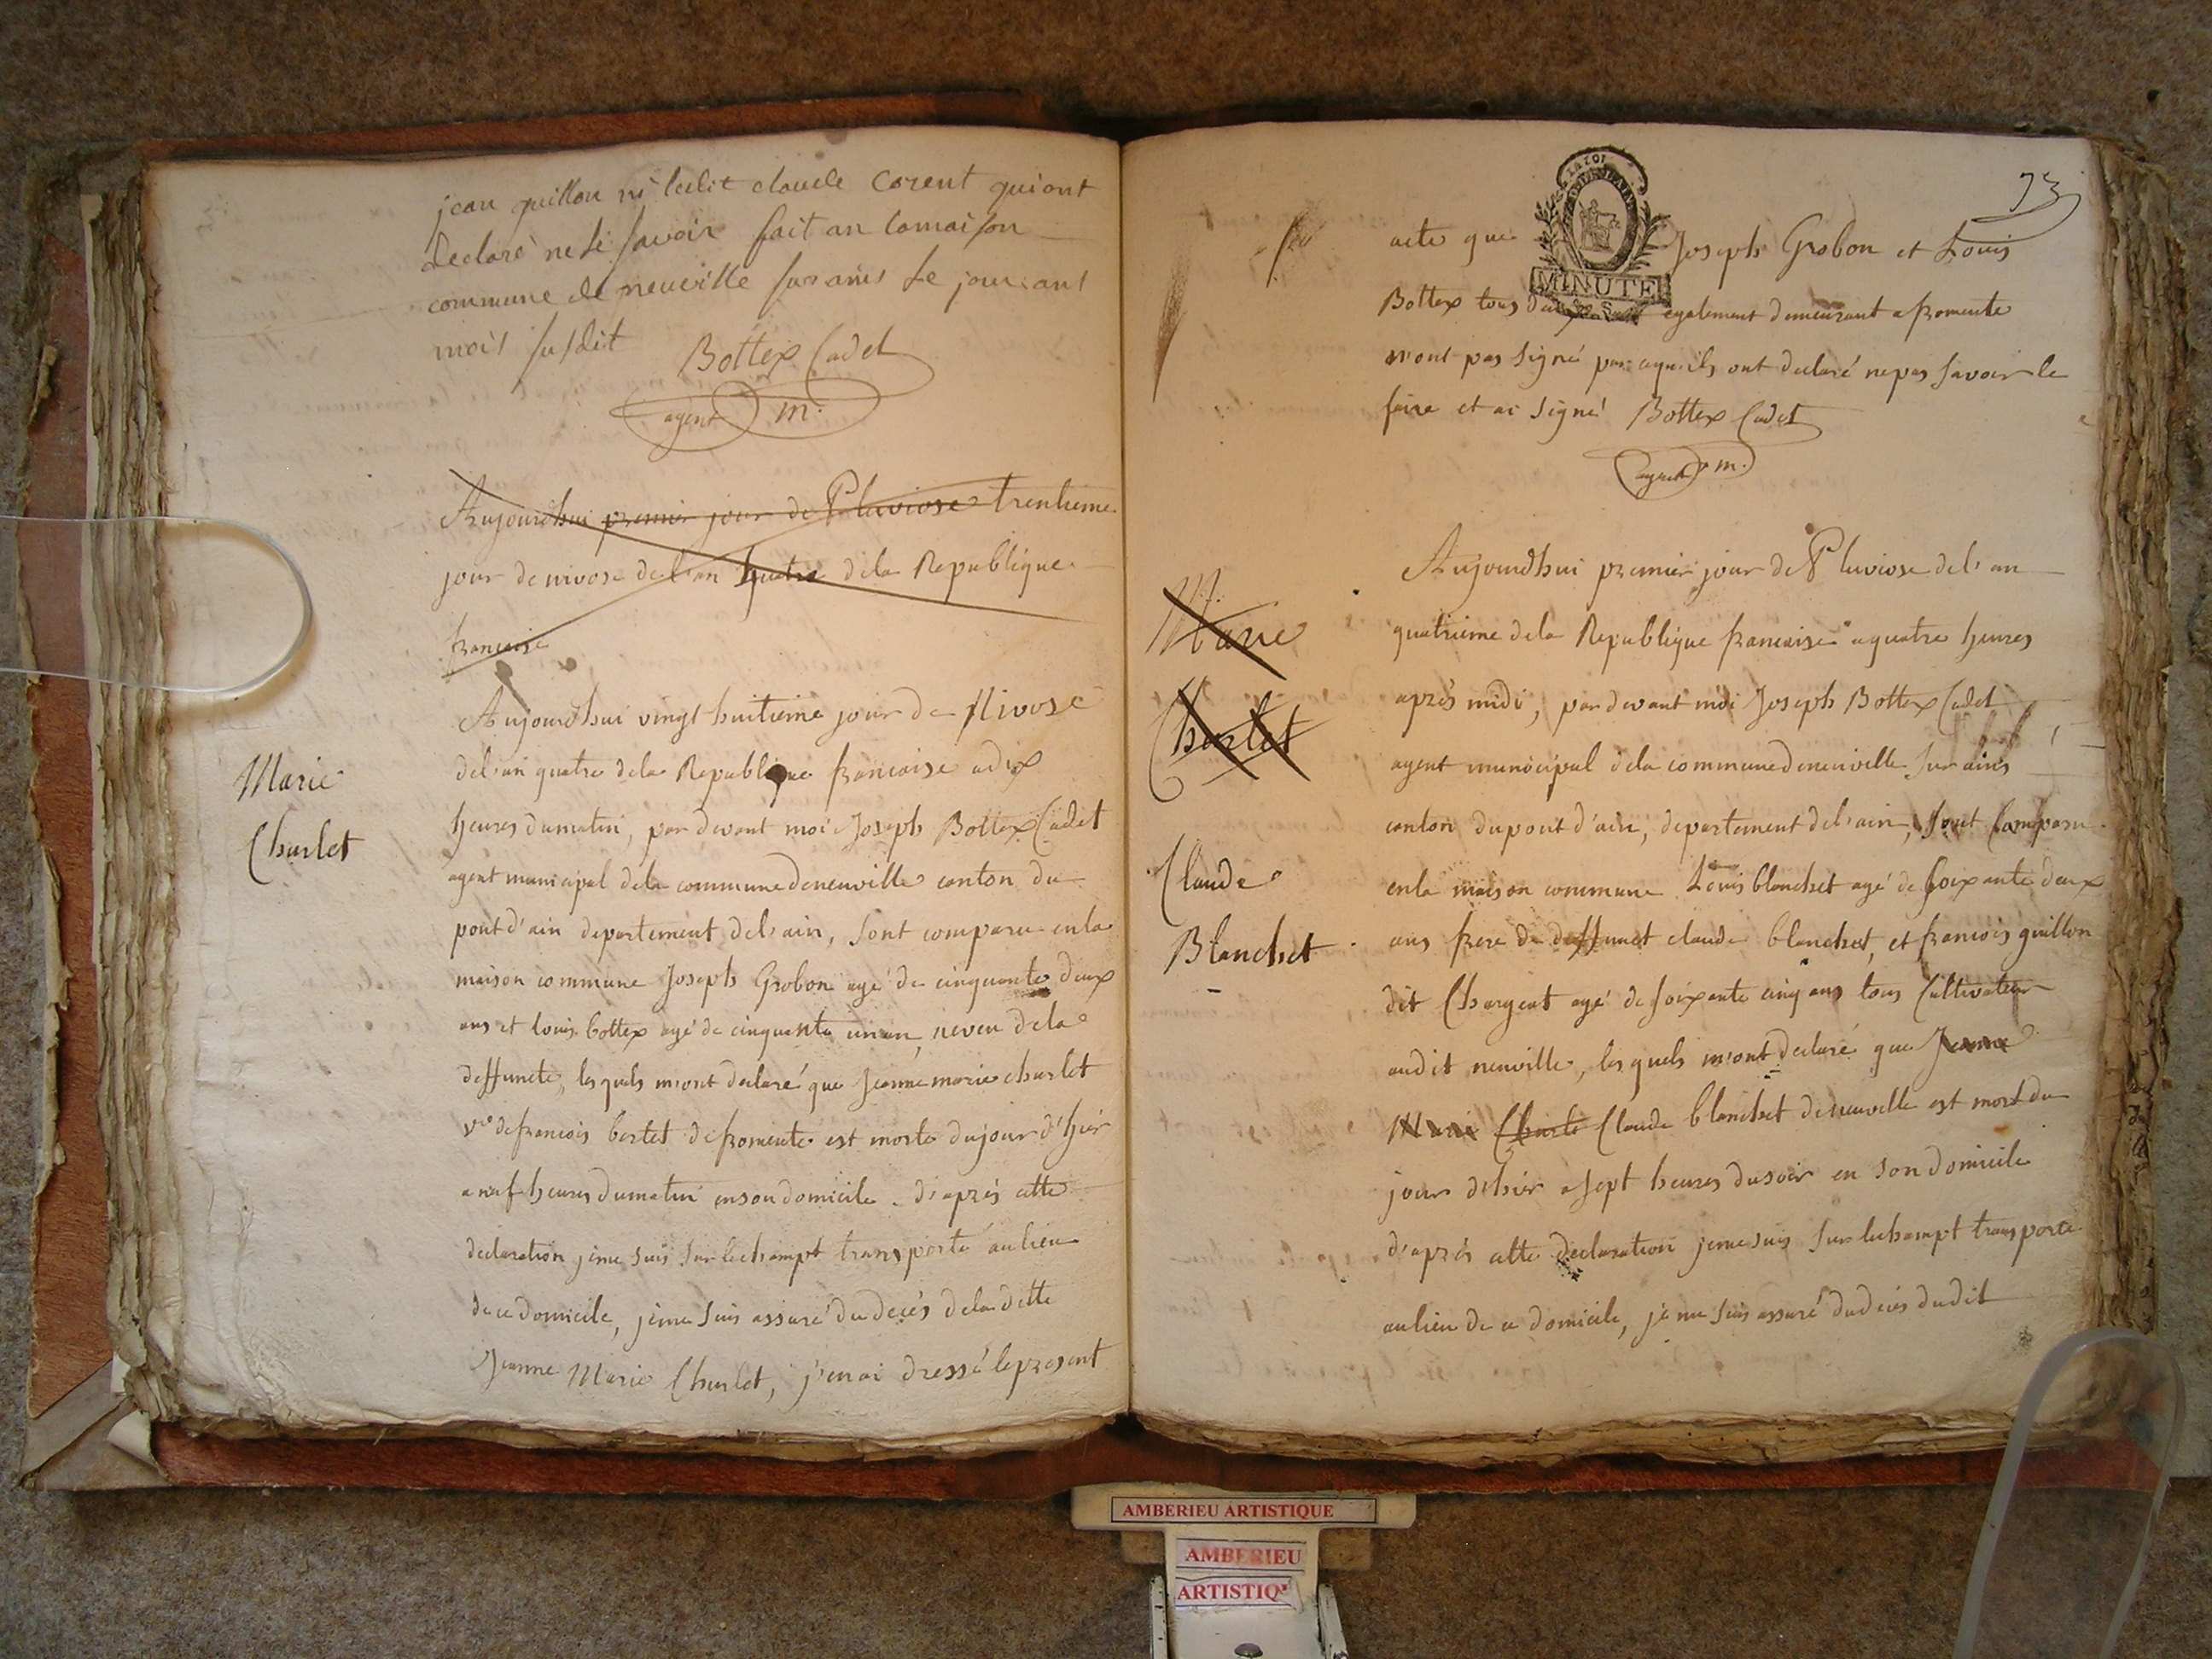 jean guillon ni ledit claude Corent qui ont
declaré ne le savoir fait an la maison
commune de neuville sur ains le jour ant
mois susdit Bottex Cadet
agent m.
Aujourdhui premier jour de Pluviose trentieme
jour de nivose del'an quatre dela Republique
francaise
Marie
Charlet
Aujourdhui vingt huitieme jour de Nivose
del'an quatre dela Republique francaise a dix
heures du matin, par devant moi Joseph Bottex Cadet
agent municipal dela commune deneuville canton du
pont d'ain departement del'ain, sont comparu enla
maison commune Joseph Grobon agé de cinquante deux
ans et louis bottex agé de cinquante un an, neveu dela
deffuncte, lesquels m'ont declaré que Jeanne marie charlet
ve de francois bertet de fromente est morte dujour d'hier
a neuf heures dumatin enson domicile. d'aprés cette
declaration jeme suis sur lechampt transporté aulieu
de ce domicile, jeme suis assuré du decés dela ditte
Jeanne Marie Charlet, j'en ai dressé lepresent
73
acte que Joseph Grobon et Louis
MINUTE
Bottex tous deux egalement demeurant a fromente
n'ont pas signé par cequ'ils ont declaré nepas savoir le
faire et ai signé Bottex Cadet
agent m.
Marie
Charlet
Claude
Blanchet
Aujourdhui premier jour de Pluviose del'an
quatrieme dela Republique francaise a quatre heures
aprés midi, par devant moi Joseph Bottex Cadet
agent municipal dela commune deneuville sur ains
canton dupont d'ain, departement del'ain, sont Comparu
enla maison commune Louis blanchet agé de soixante deux
ans frere de deffunct claude blanchet, et francois guillon
dit Chargeat agé de soixante cinq ans tous Cultivateur
audit neuville, lesquels m'ont declaré que Jeanne
Marie Charle Claude blanchet deneuville est mort du
jour d'hier a sept heures dusoir en son domicile
d'aprés cette declaration jeme suis sur lechampt transporté
aulieu de ce domicile, je me suis assuré dudecés dudit
AMBERIEU ARTISTIQUE
AMBERIEU
ARTISTIQ